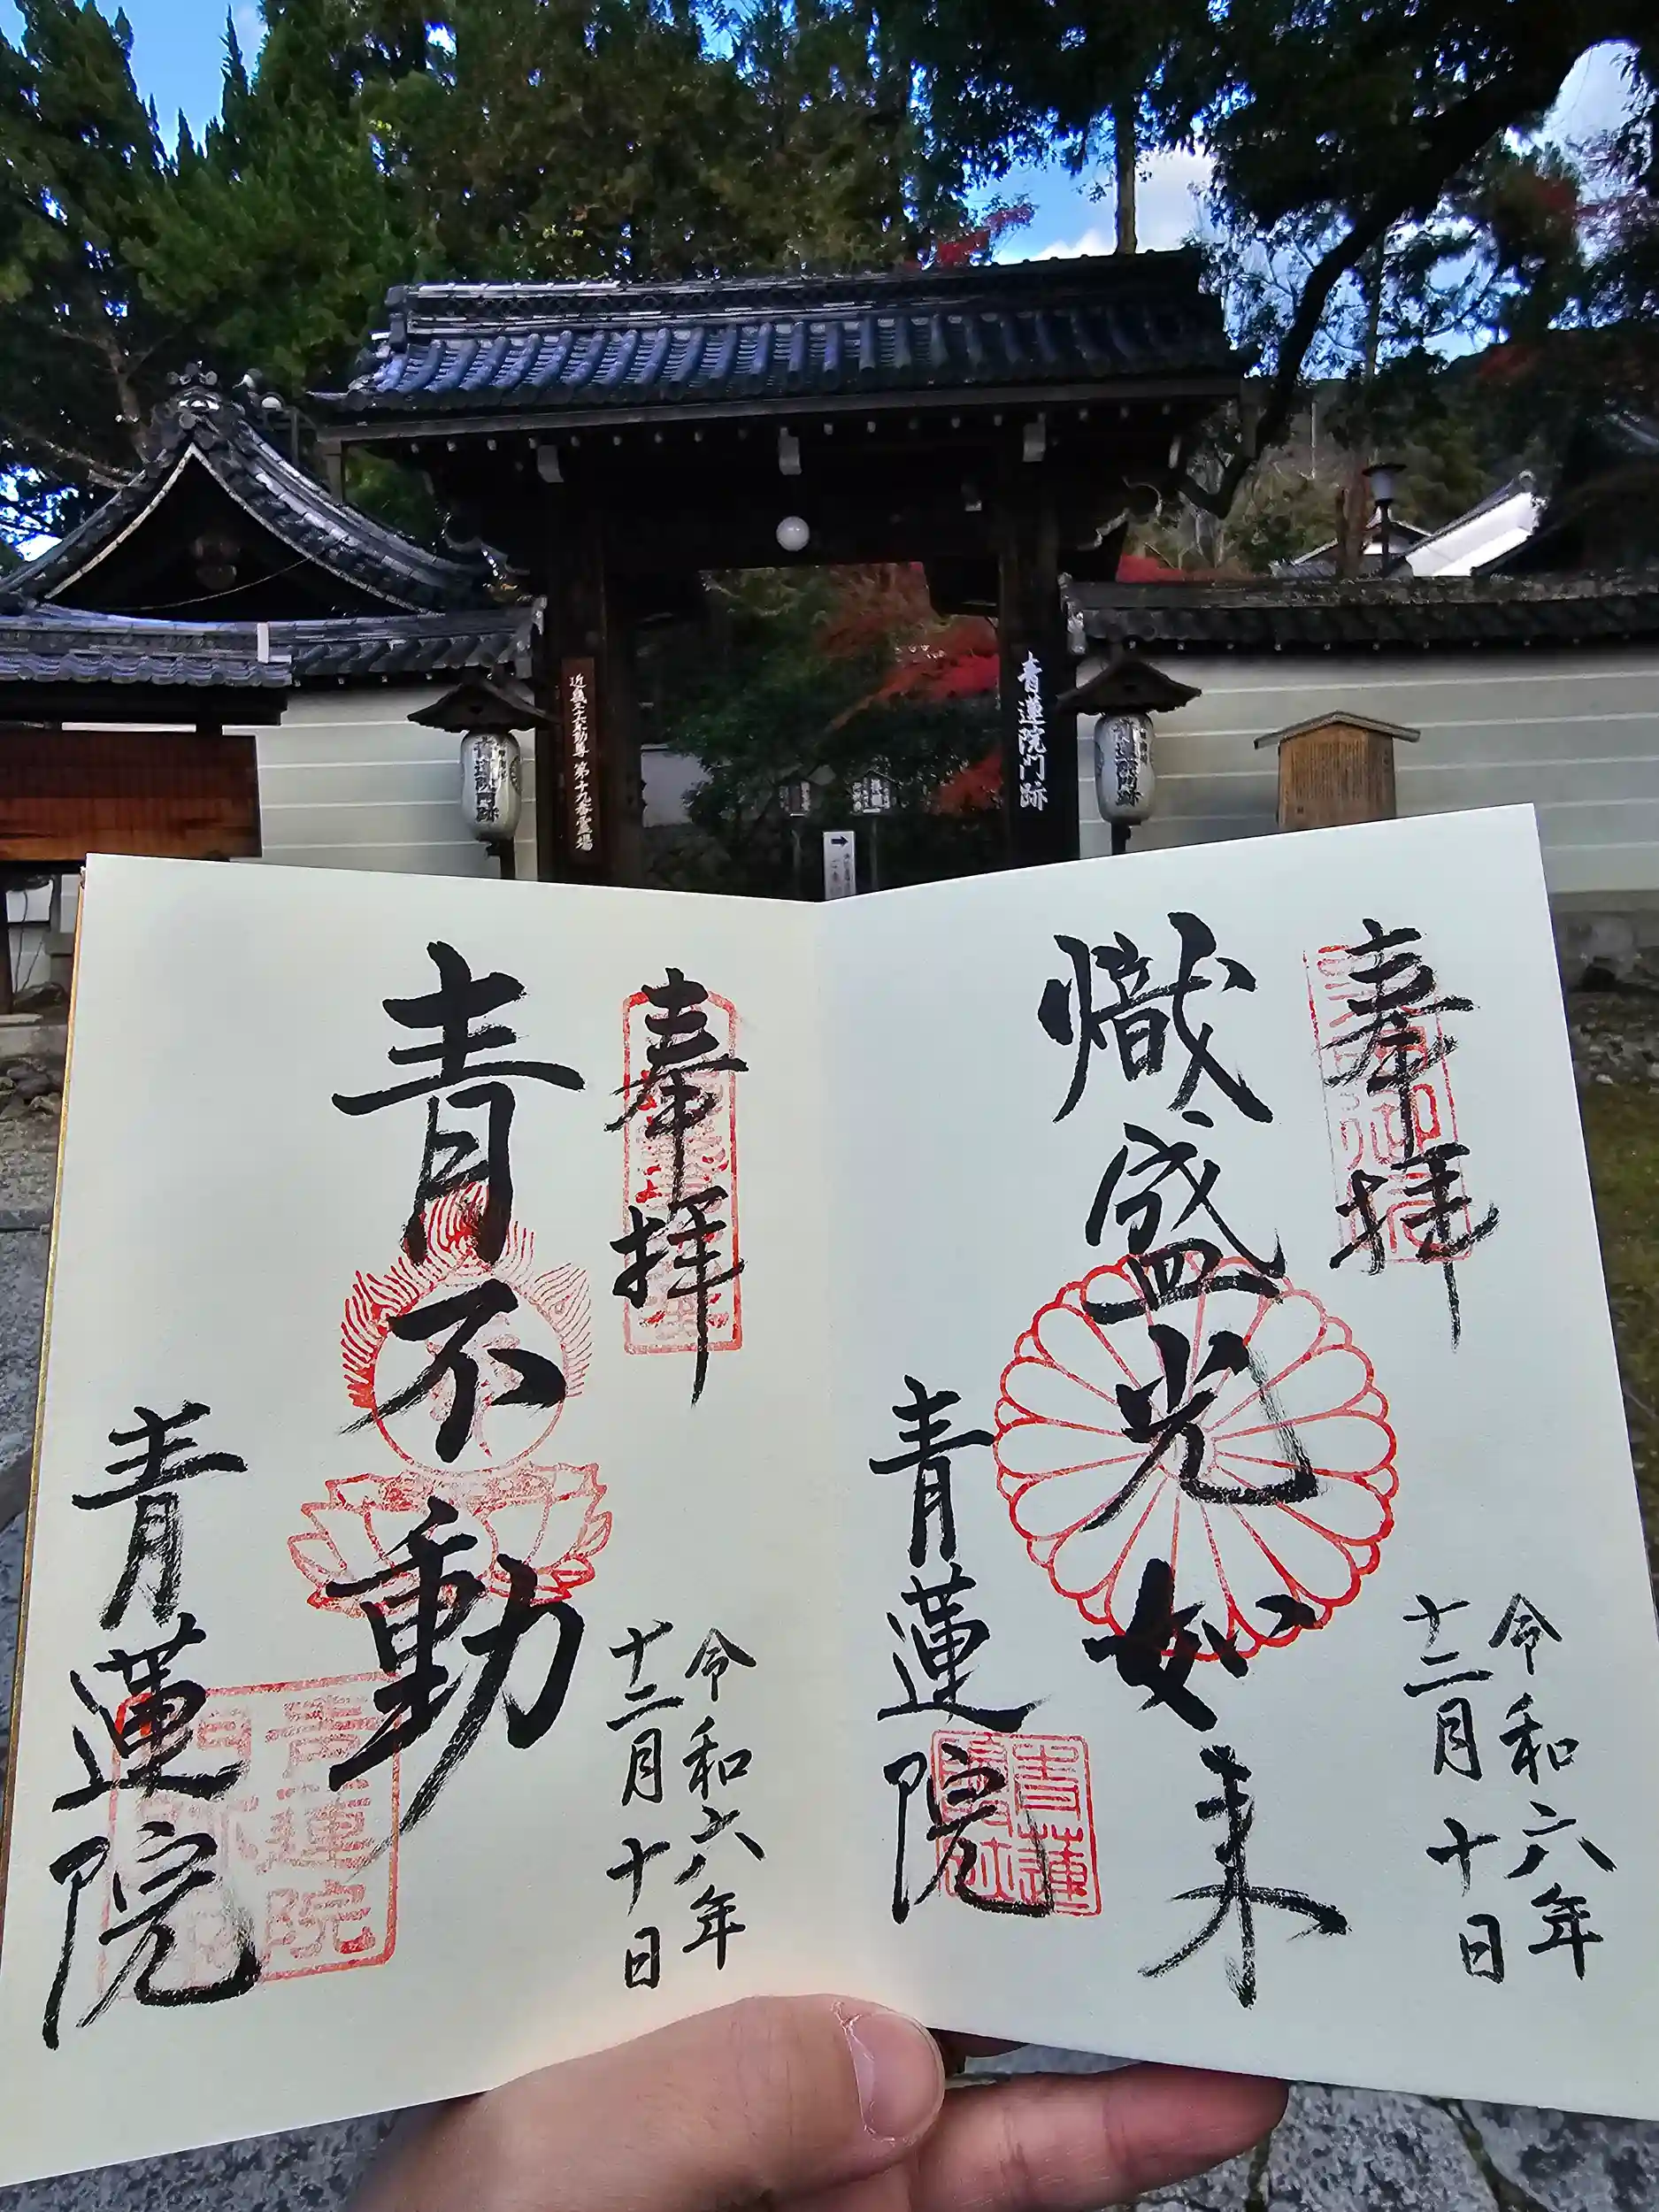 近畿三十六不動尊 第十九番霊場
青蓮院門跡
青蓮院門跡
青蓮院門跡
奉拝
熾盛光如来
令和六年
十二月十日
青蓮院
青蓮
奉拝
青不動
令和六年
十二月十日
青蓮院
青蓮院